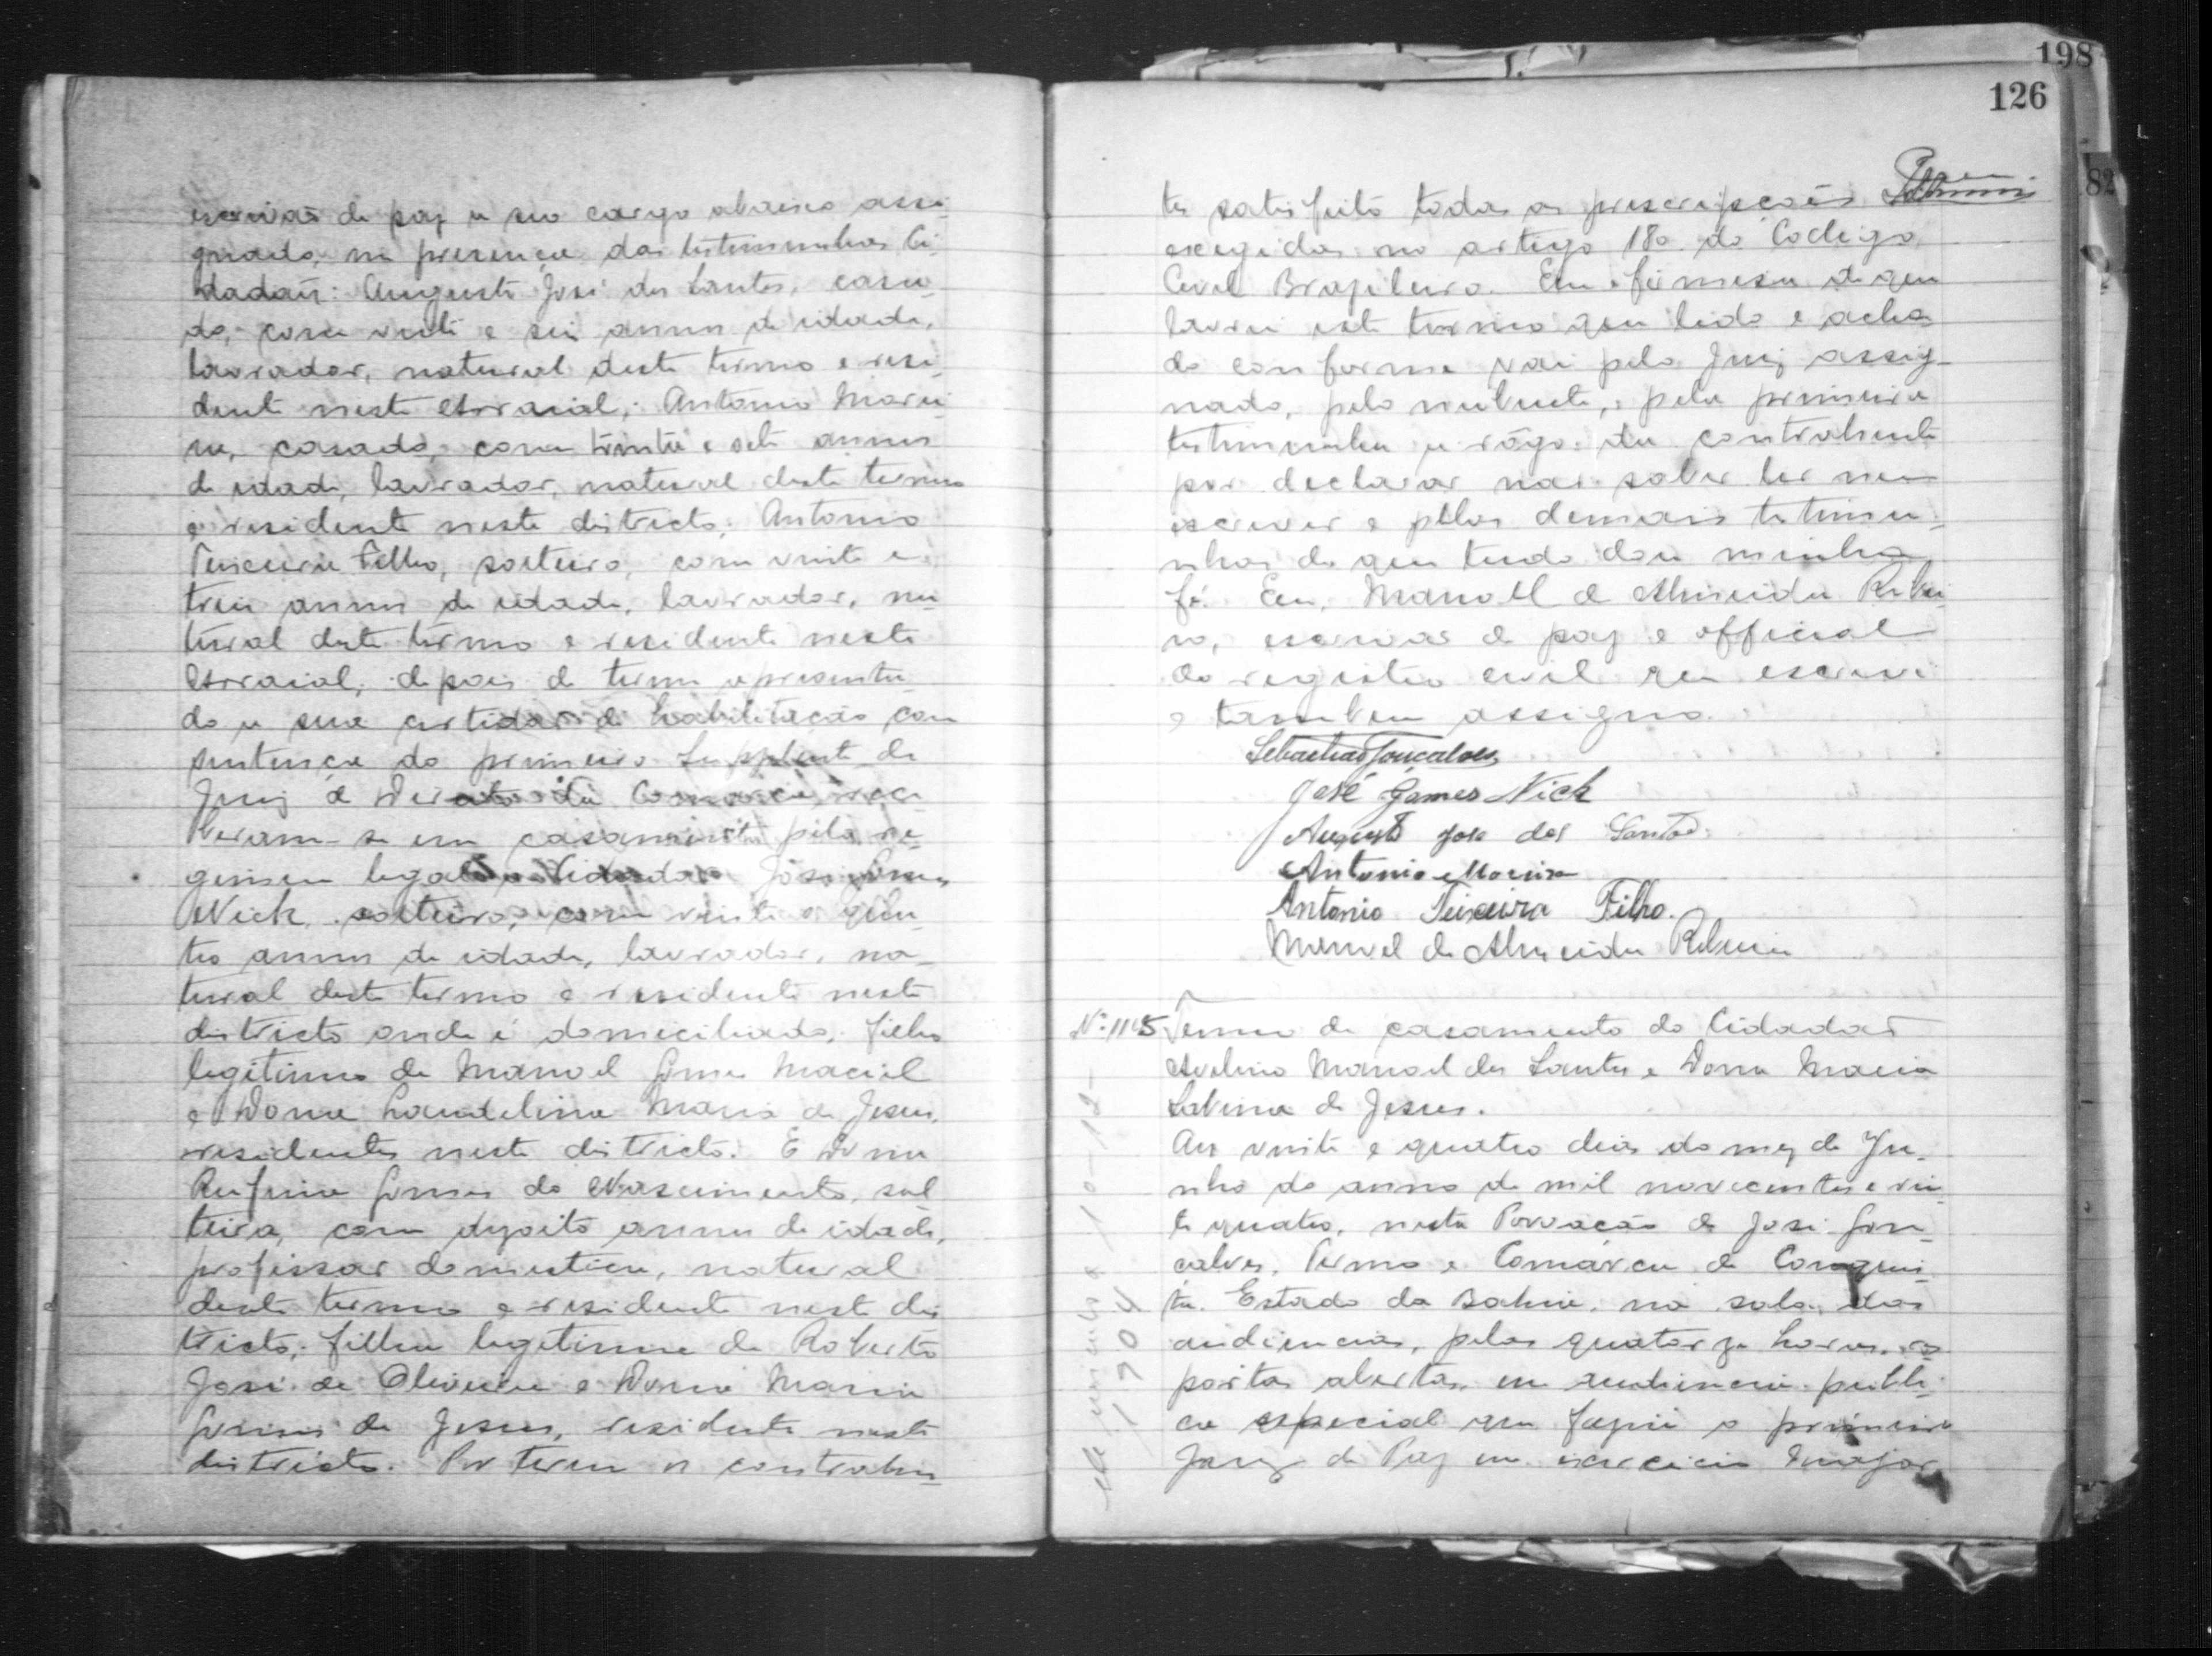 escrivão de paz a seo cargo abaixo assi-
gnado, na presença das testimunhas Ci-
dadaõs: Augusto José dos Santos, casa-
do, com vinte e seis annos de idade,
lavrador, natural deste termo e resi-
dente neste Arraial; Antonio Morei-
ra, casado, com trinta e sete annos
de idade, lavrador, natural deste termo
e residente neste districto; Antonio
Teixeira Filho, solteiro, com vinte e
treis annos de idade, lavrador, na-
tural deste termo e residente neste
Arraial, depois de terem apresenta-
do a sua certidão de habilitação com
sentença do primeiro Supplente de
Juiz de Direito da Comarca, rece-
beram-se em casamento pelo re-
gimen legal o Cidadão José Gomes
Nick, solteiro, com vinte e qua-
tro annos de idade, lavrador, na-
tural deste termo e residente neste
districto onde é domiciliado, filho
legitimo de Manoel Gomes Maciel
e Dona Laudelina Maria de Jesus,
residentes neste districto. E Dona
Rufina Gomes do Nascimento, sol-
teira, com dezoito annos de idade,
professar domestica, natural
deste termo e residente neste dis-
tricto, filha legitima de Roberto
José de Oliveira e Dona Maria
Gomes de Jesus, residente neste
districto. Por terem os contrahen-
198
126
82
tes satisfeito todas as prescripções
exegidas no artigo 180 do Codigo
Civel Brazileiro. Em firmesa do que
lavrei este termo que lido e acha-
do conforme vai pelo Juiz assig-
nado, pelo nubente, pela primeira
testimunha a rôgo da contrahente
por declarar não saber ler nem
escrever e pelas demais testimu-
nhas do que tudo dou minha
fé. Eu, Manoel de Almeida Ribei-
ro, escrivão de paz e official
do registro civil que escrevi
e tambem assigno.
Sebastião Gonçalves
José Gomes Nick
Augusto Jose dos Santos
Antonio Moreira
Antonio Teixeira Filho.
Manoel de Almeida Ribeiro
Nº 1145 Termo de casamento do Cidadão
Avelino Manoel dos Santos e Dona Maria
Sabina de Jesus.
Aos vinte e quatro dias do mez de Ju-
nho do anno de mil novecentos e vin-
te quatro, nesta Povoação de José Gon-
calves, Termo e Comárca de Conquis-
ta, Estado da Bahia, na sala das
audiencias, pelas quatorze horas, as
portas abertas, em audiencia publi-
ca especial que fazia o primeiro
Juiz de Paz em exercicio Major
10-12-
1904